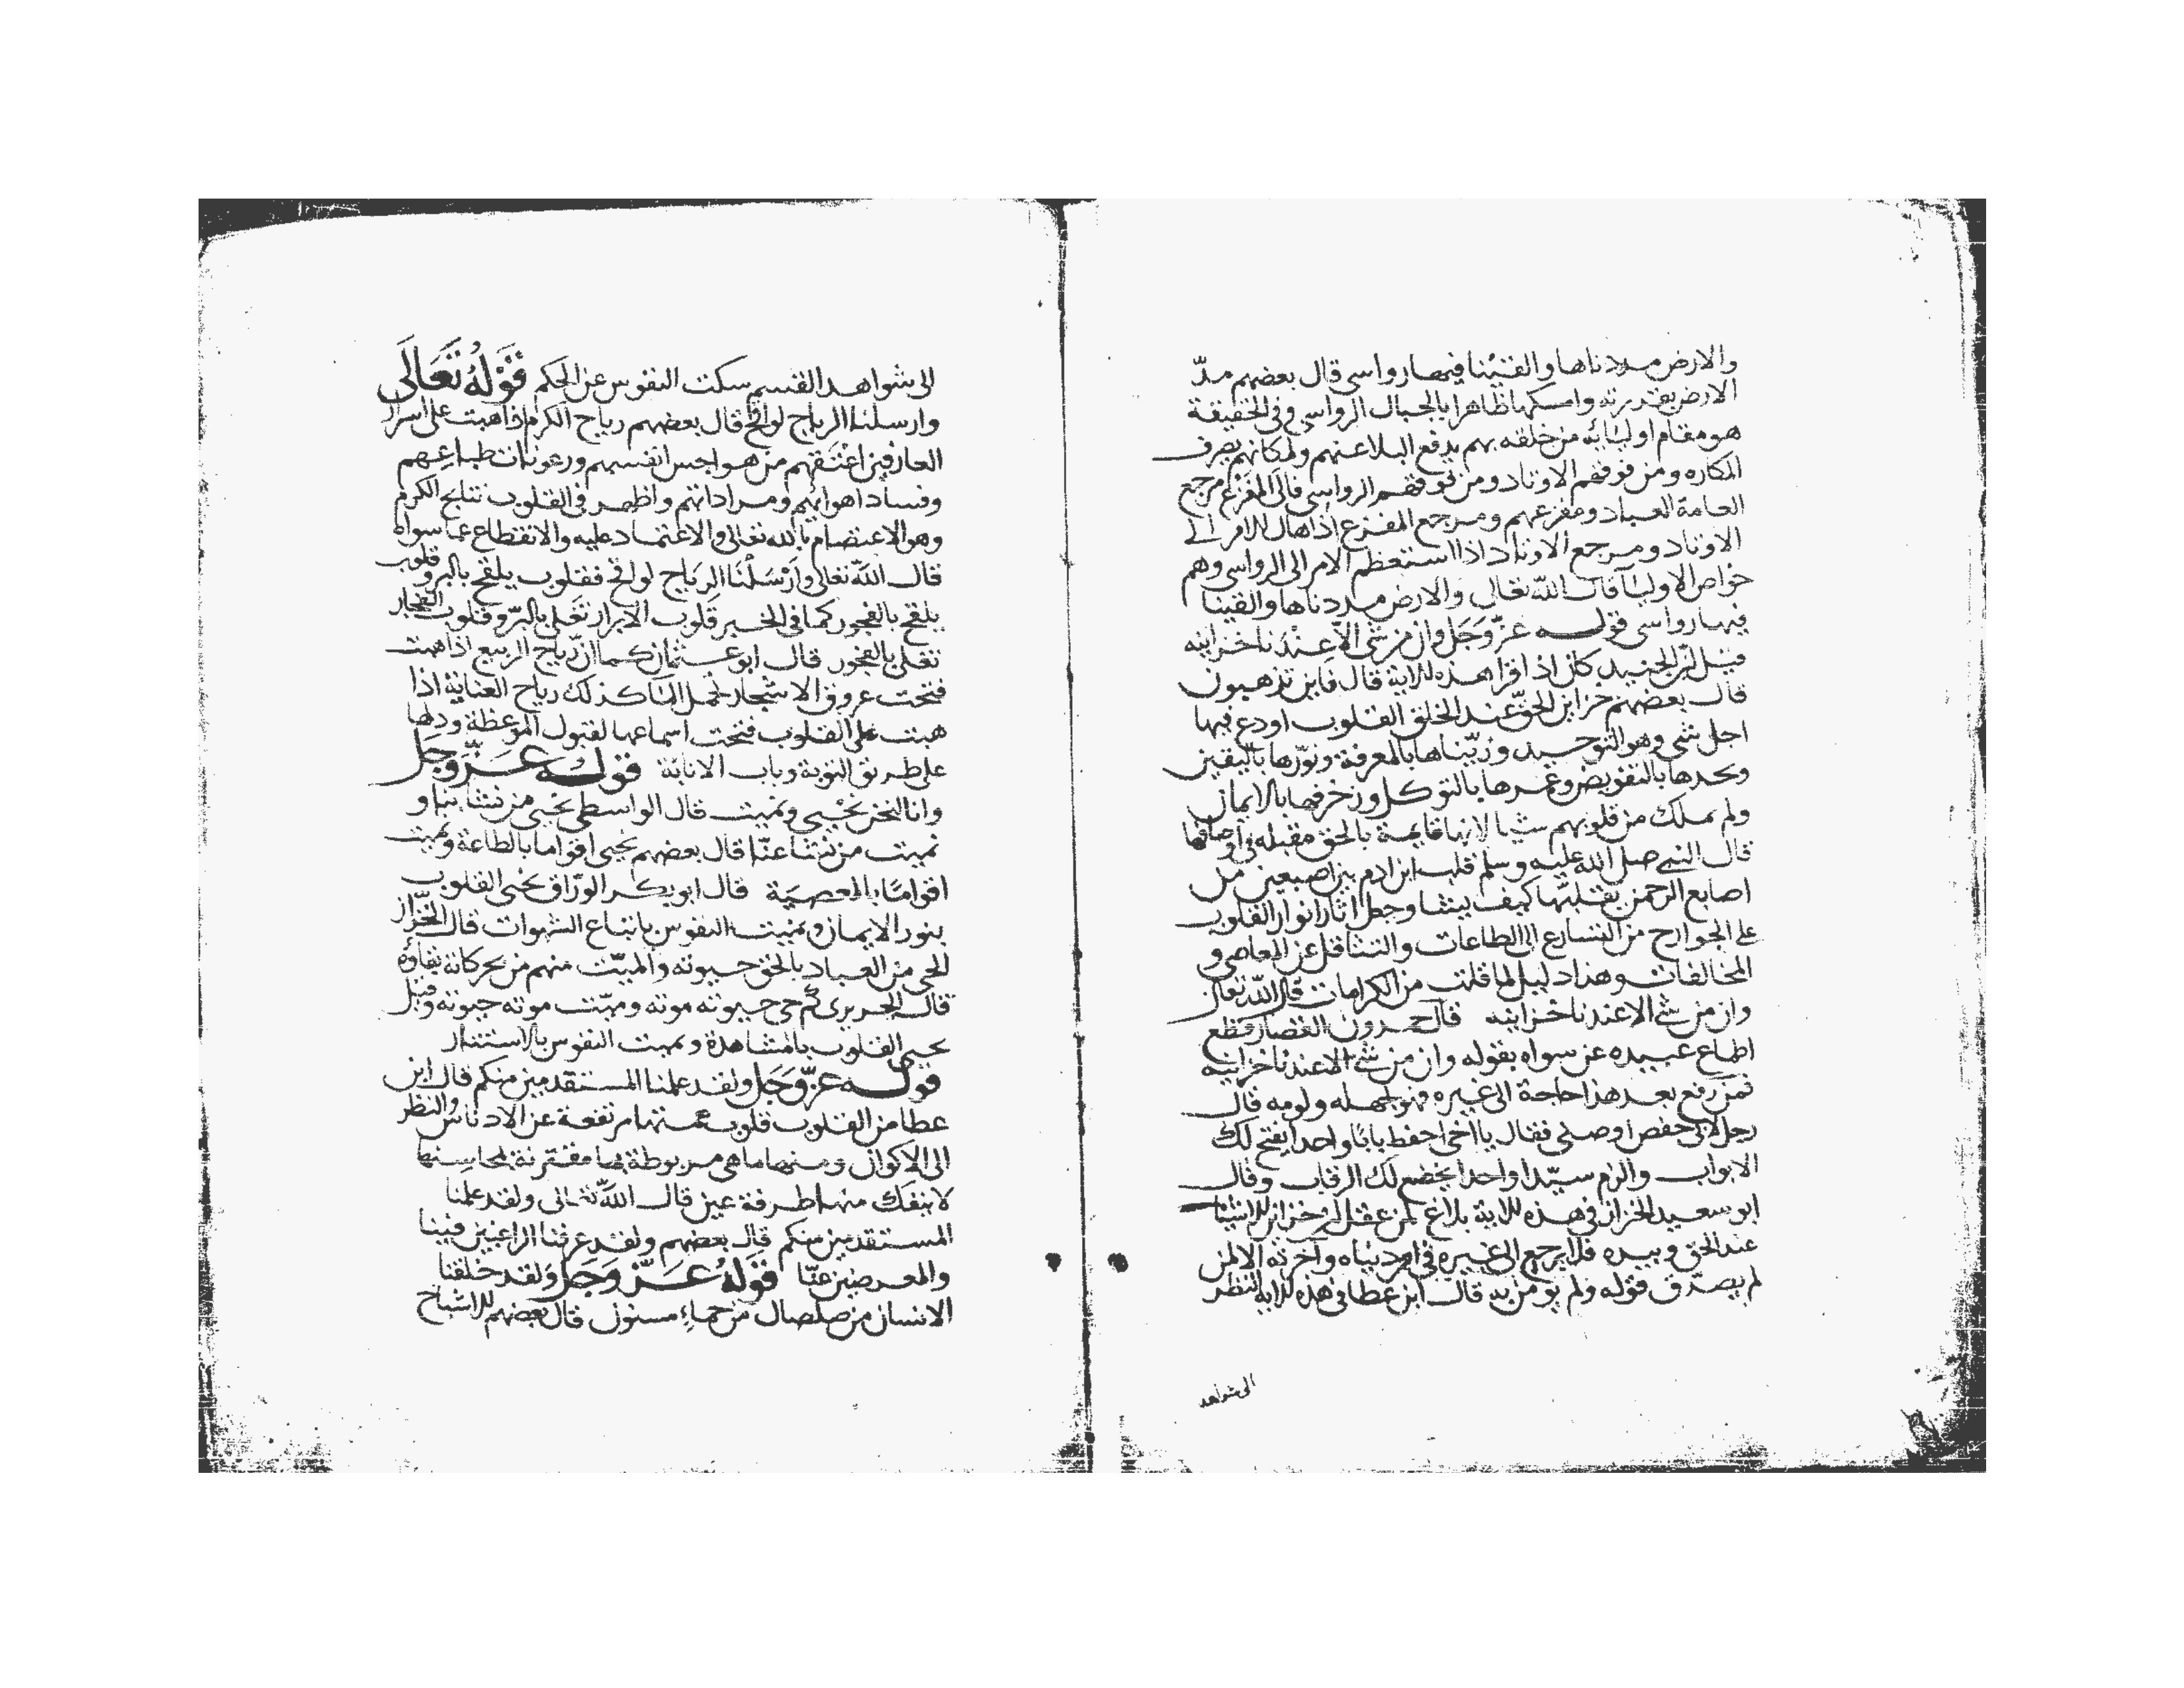 والارض مددناها والقينا فيها رواسى قال بعضهم مدّ
الارض بقدرته وامسكها ظاهرا بالجبال الرواسى وفى الحقيقة
هو مقام اوليائه من خلقه بهم يدفع البلا عنهم ولمكانهم يصرف
المكاره ومن فوقهم الاوتاد ومن فوقهم الرواسى فالى المفزع مرجع
العامة العباد ومفزعهم ومرجع المفزع اذا هال الامر الى
الاوتاد ومرجع الاوتاد اذا استعظم الامر الى الرواسى وهم
خواص الاوليا قال الله تعالى والارض مددناها والقينا
فيها رواسى قوله عزّ وجل وان من شى الّا عندنا خزاينه
قيل انّ الجنيد كان اذا قرا هذه الاية قال فاين تذهبون
قال بعضهم خزاين الحقّ عند الخلق القلوب اودع فيها
اجل شى وهو التوحيد وزيّناها بالمعرفة ونوّرها باليقين
وبالتفويض وعمرها بالتوكل وزخرفها بالايمان
ولم يملك من قلوبهم شيا لانها قايمة بالحق مقبله فى اوصافها
قال النبى صلى الله عليه وسلم قلب ابن ادم بين اصبعين من
اصابع الرحمن يقلبها كيف يشا وجعل اثار انوار القلوب
على الجوارح من التسارع الى الطاعات والتثاقل عن المعاصى و
المخالفات وهذا دليل لما قلت من الكرامات قال الله تعالى
وان من شى الا عندنا خزاينه قال حمدون القصار قطع
اطماع عبيده عن سواه بقوله وان من شى الا عندنا خزاينه
فمن رفع بعد هذا حاجة الى غيره فهو لجهله ولومه قال
رجل لابى حفص اوصنى فقال يا اخى احفظ بابا واحدا يفتح لك
الابواب والزم سيّدا واحدا يخضع لك الرقاب وقال
ابو سعيد الخراز فى هذه الاية بلاغ لمن عقل ان خزاين الاشيا
عند الحق وبيده فلا يرجع الى غيره فى امر دنياه وآخرته الا لمن
لم يصدّق قوله ولم يومن به قال ابن عطا فى هذه الاية النظر
الى شواهد
الى شواهد القسم سكت النفوس عن الحكم قَوْلُهُ تَعَالَى
وارسلنا الرياح لواقح قال بعضهم رياح الكرم اذا هبت على اسرار
العارفين اعتقهم من هواجس انفسهم ورعونات طباعهم
وفساد اهوائهم ومراداتهم واظهر فى القلوب نتايج الكرم
وهو الاعتصام بالله تعالى والاعتماد عليه والانقطاع عما سواه
قال اللّه تعالى وَاَرْسَلْنَا الرياح لواقح فقلوب يلقح بالبر وقلوب
يلقح بالفجور كما فى الخبر قلوب الابرار تغلى بالبرّ وقلوب الفجار
تغلى بالفجور قال ابو عثمان كما انّ رياح الربيع اذا هبت
فتحت عروق الاشجار لحمل الما كذلك رياح العناية اذا
هبت على القلوب فتحت اسماعها لقبول الموعظة ودلها
على طريق التوبة وباب الانابة قوله عزّ وجل
وانا لنحن نحيى ونميت قال الواسطى نحيى من نشا بنا و
نميت من نشا عنّا قال بعضهم نحيى اقواما بالطاعة ونميت
اقوامًا بالمعصية قال ابو بكر الورّاق نحيى القلوب
بنور الايمان ونميت النفوس باتباع الشهوات قال الخرّاز
الحى من العباد بالحق حيوته والميّت منهم من بحركاته بقاؤه
قال الحريرى كم حى حيوته موته وميّت موته حيوته وقيل
نحيى القلوب بالمشاهدة ونميت النفوس بالاستتار
قوله عزّ وجل ولقد علمنا المستقدمين منكم قال ابن
عطا من القلوب قلوب همتها مرتفعة عن الادناس والنظر
الى الاكوان ومنها ما هى مربوطة بها مقترنة بمحاسنها
لا ينفك منها طرفة عين قال اللّه تعالى ولقد علمنا
المستقدمين منكم قال بعضهم ولقد عرفنا الراغبين فينا
والمعرضين عنّا قَوْلُهُ عَزّ وَجَل وَلقد خلقنا
الانسان من صلصال من حماءٍ مسنون قال بعضهم الاشباح